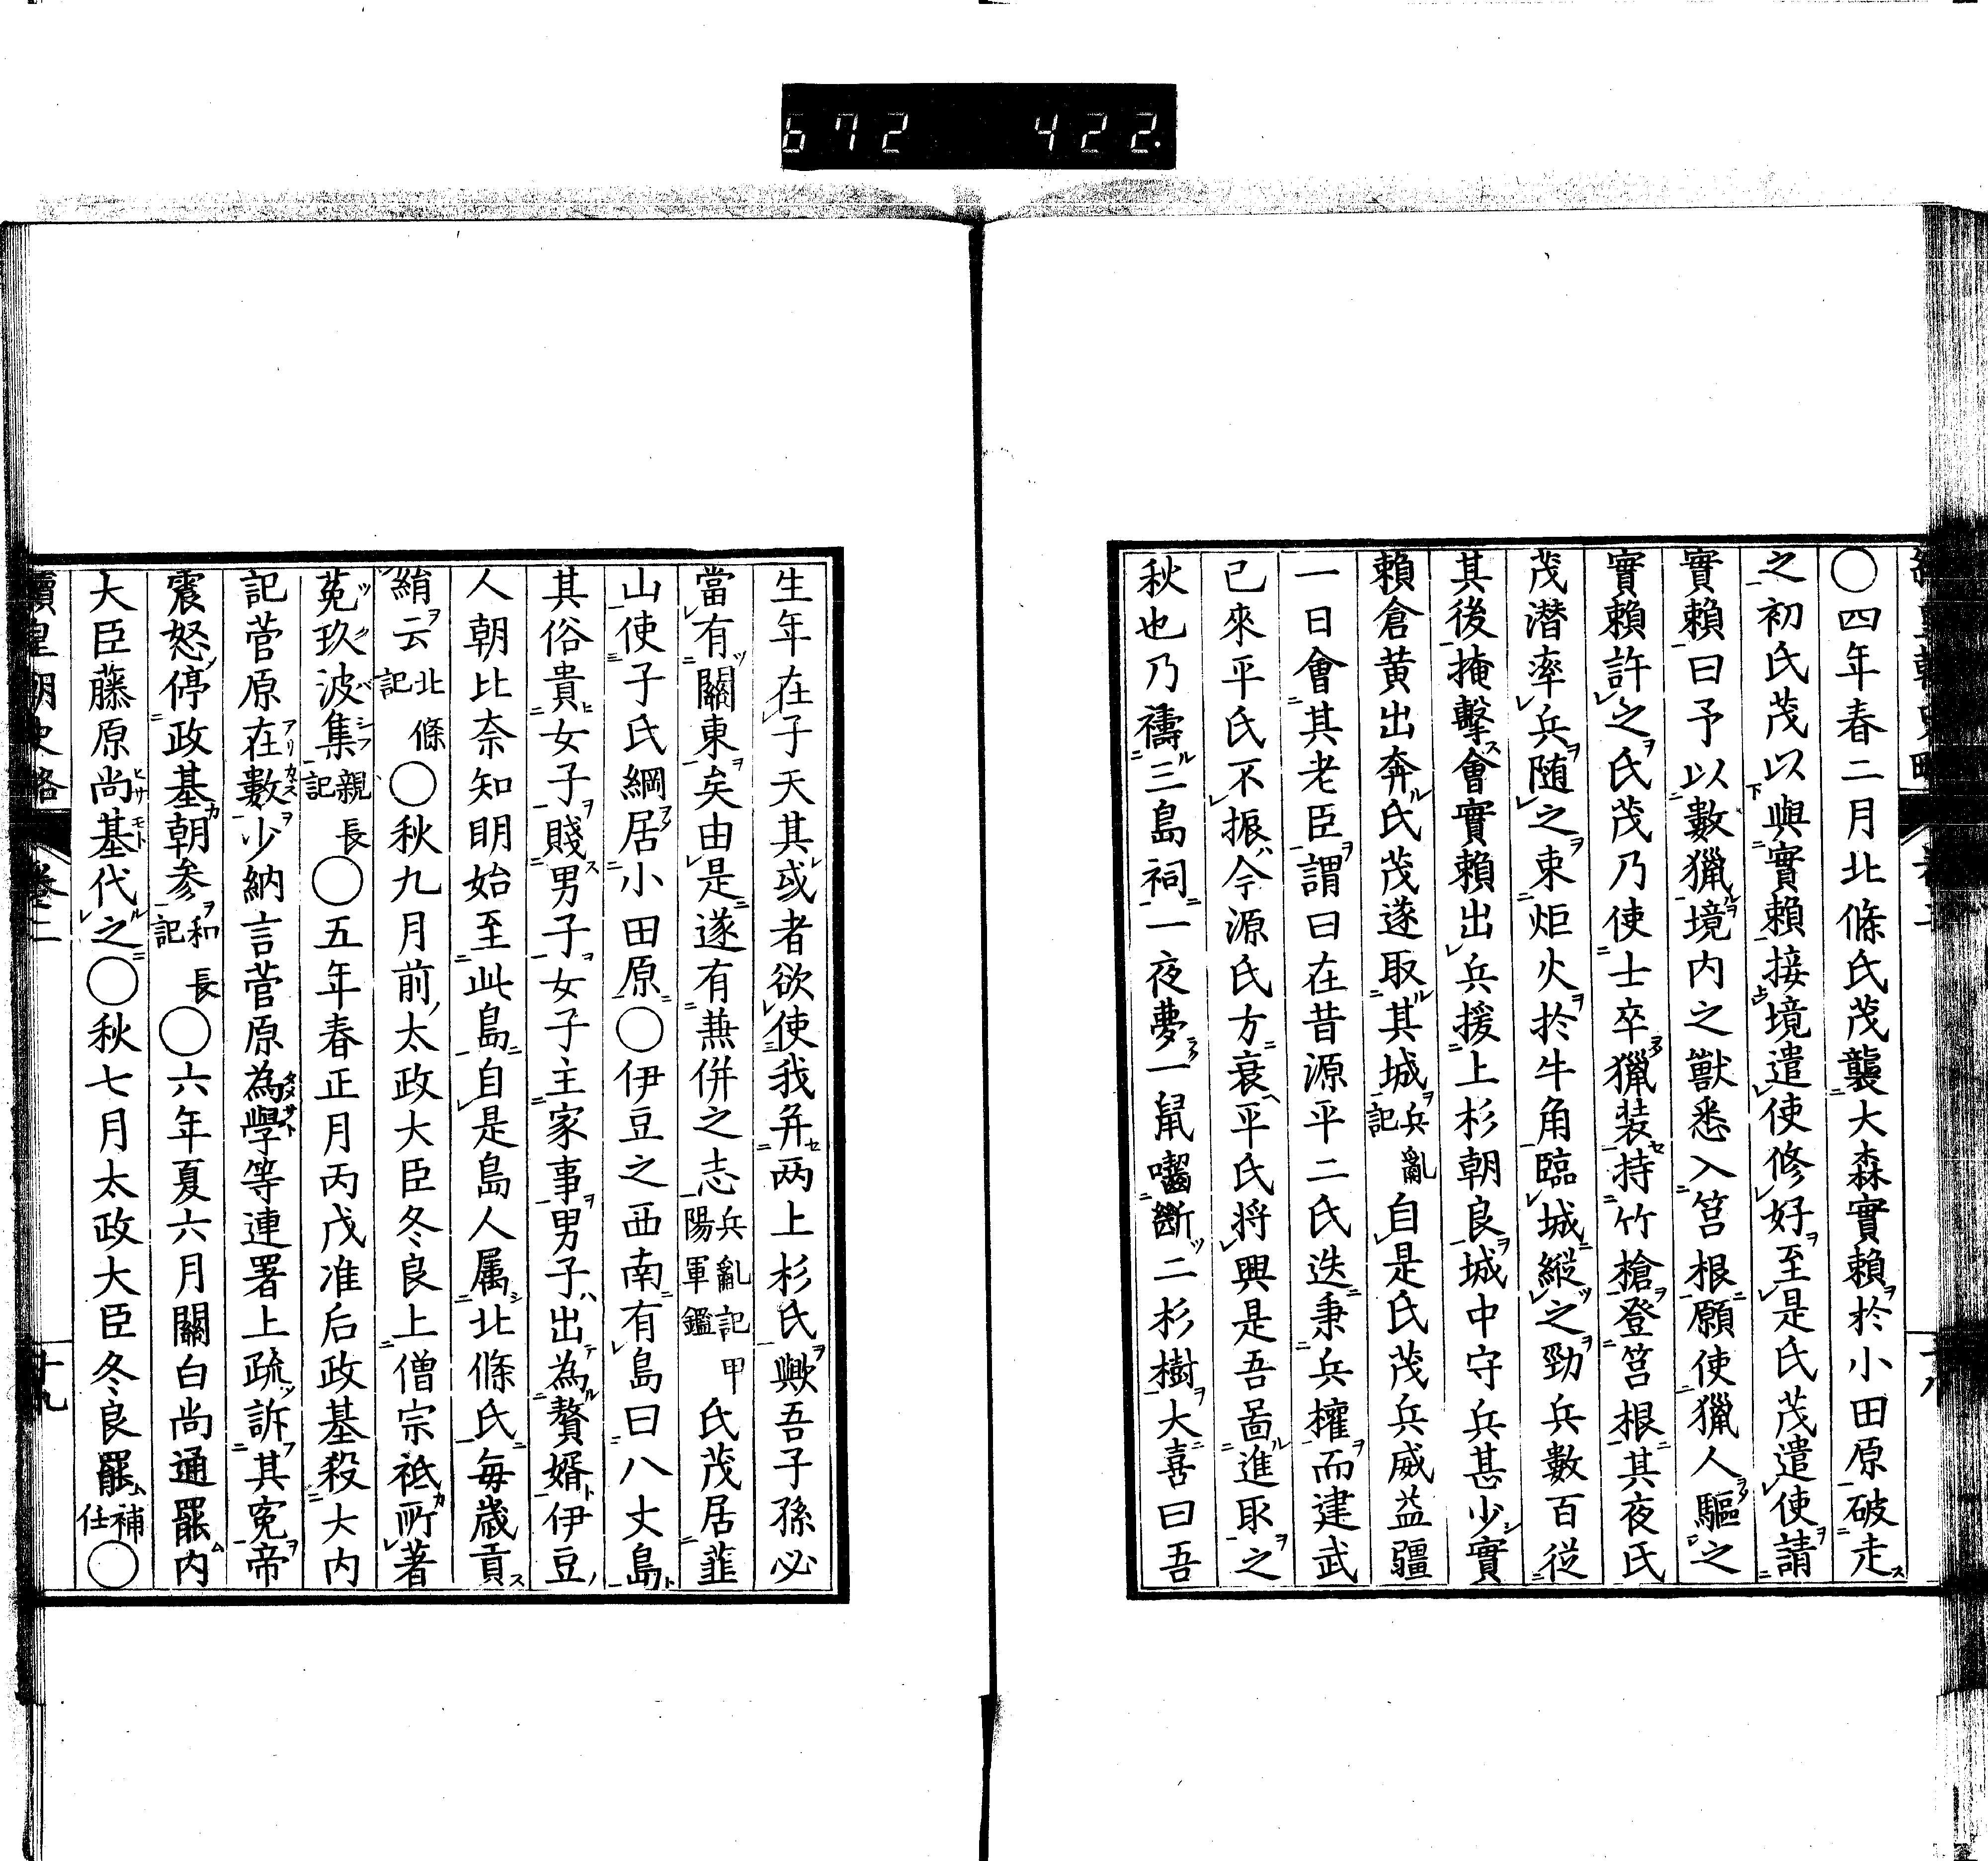 672 422.
〇四年春二月北條氏茂襲大森實賴於小田原破走
之初氏茂以與實賴接境遣使修好至是氏茂遣使請
實賴曰予以數獵境內之獸悉入筥根願使獵人驅之
實賴許之氏茂乃使士卒獵装持竹槍登筥根其夜氏
茂潜率兵随之束炬火於牛角臨城縱之勁兵數百從
其後掩擊會實賴出兵援上杉朝良城中守兵甚少實
賴倉黄出奔氏茂遂取其城兵亂記自是氏茂兵威益疆
一日會其老臣謂曰在昔源平二氏迭秉兵權而建武
已來平氏不振今源氏方衰平氏將興是吾啚進取之
秋也乃禱三島祠一夜夢一鼠囓斷二杉樹大喜曰吾
生年在子天其或者欲使我并两上杉氏歟吾子孫必
當有關東矣由是遂有兼併之志兵亂記甲陽軍鑑氏茂居韮
山使子氏綱居小田原〇伊豆之西南有島曰八丈島
其俗貴女子賤男子女子主家事男子出為贅婿伊豆
人朝比奈知明始至此島自是島人属北條氏毎歲貢
絹云北條記〇秋九月前太政大臣冬良上僧宗祗所著
菟玖波集親長記〇五年春正月丙戌准后政基殺大內
記菅原在數少納言菅原為學等連署上疏訴其寃帝
震怒停政基朝参和長記〇六年夏六月關白尚通罷內
大臣藤原尚基代之〇秋七月太政大臣冬良罷補任〇
續皇朝史略 卷二 十九